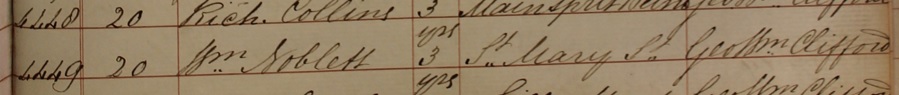 4448 20 Rich. Collins 3 yrs
4449 20 Wm. Noblett 3 yrs St. Mary St. Geo Wm Clifford